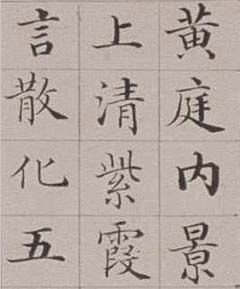 黄庭内景
上清紫霞
言散化五